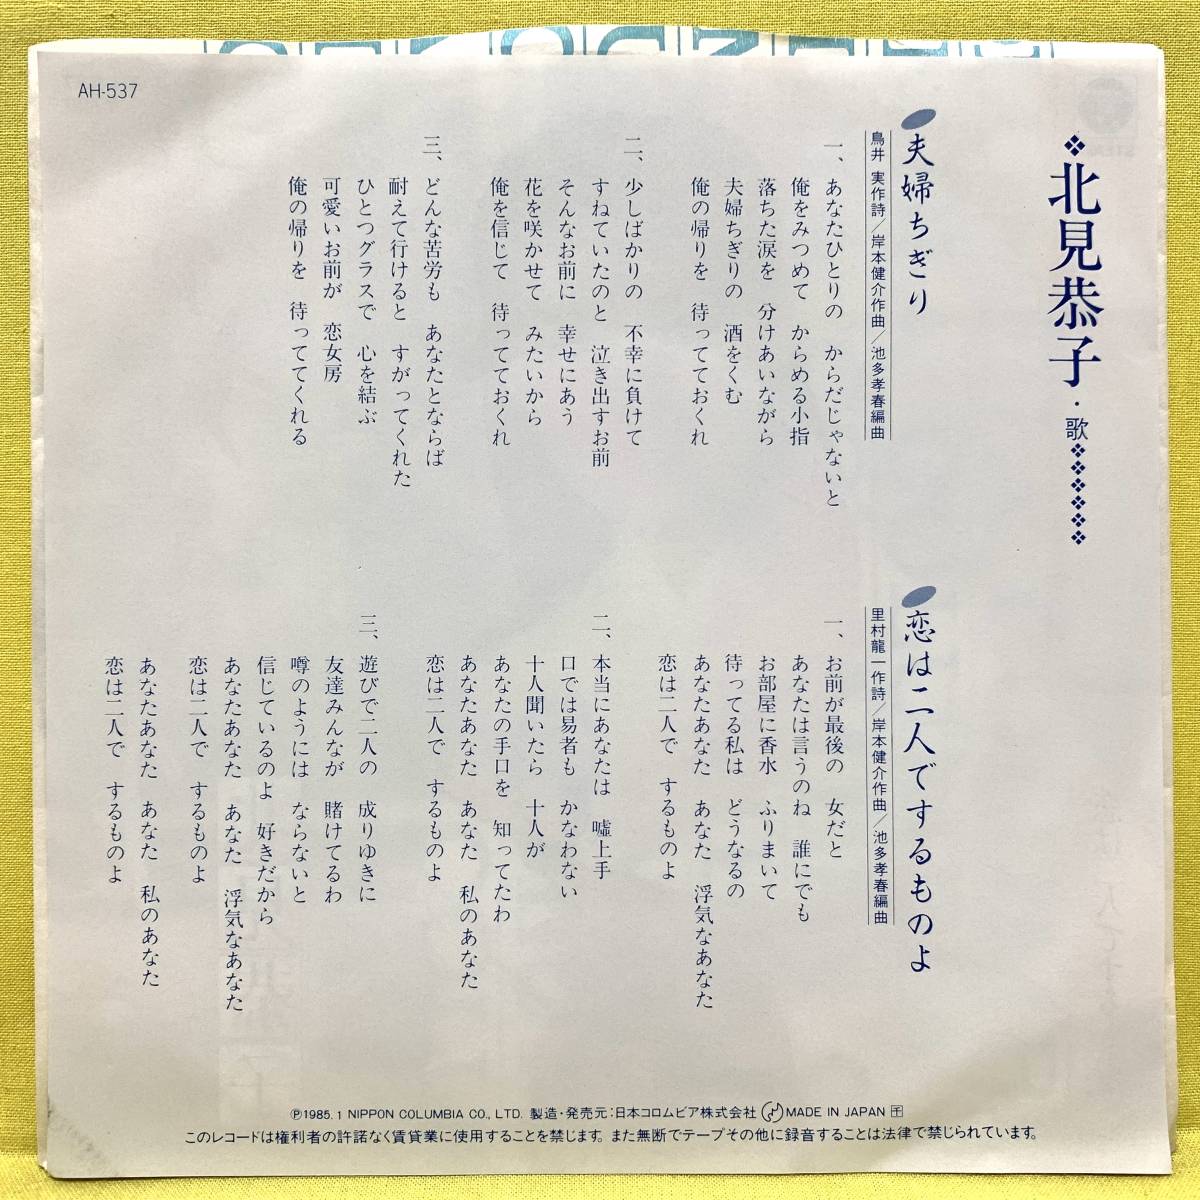 AH-537
北見恭子・歌
夫婦ちぎり
鳥井 実作詩／岸本健介作曲／池多孝春編曲
一、あなたひとりの からだじゃないと
俺をみつめて からめる小指
落ちた涙を 分けあいながら
夫婦ちぎりの 酒をくむ
俺の帰りを 待ってておくれ
二、少しばかりの 不幸に負けて
すねていたのと 泣き出すお前
そんなお前に 幸せにあう
花を咲かせて みたいから
俺を信じて 待ってておくれ
三、どんな苦労も あなたとならば
耐えて行けると すがってくれた
ひとつグラスで 心を結ぶ
可愛いお前が 恋女房
俺の帰りを 待っててくれる
恋は二人でするものよ
里村龍一作詩／岸本健介作曲／池多孝春編曲
一、お前が最後の 女だと
あなたは言うのね 誰にでも
お部屋に香水 ふりまいて
待ってる私は どうなるの
あなたあなた あなた 浮気なあなた
恋は二人で するものよ
二、本当にあなたは 嘘上手
口では易者も かなわない
十人聞いたら 十人が
あなたの手口を 知ってたわ
あなたあなた あなた 私のあなた
恋は二人で するものよ
三、遊びで二人の 成りゆきに
友達みんなが 賭けてるわ
噂のようには ならないと
信じているのよ 好きだから
あなたあなた あなた 浮気なあなた
恋は二人で するものよ
あなたあなた あなた 私のあなた
恋は二人で するものよ
Ⓟ1985.1 NIPPON COLUMBIA CO., LTD. 製造・発売元:日本コロムビア株式会社 MADE IN JAPAN
このレコードは権利者の許諾なく賃貸業に使用することを禁じます。また無断でテープその他に録音することは法律で禁じられています。